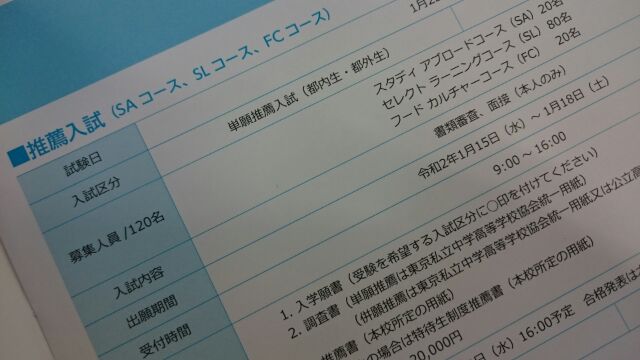 ■推薦入試（SAコース、SLコース、FCコース）
試験日
1月2
入試区分
単願推薦入試（都内生・都外生）
募集人員/120名
スタディ アブロードコース（SA）20名
セレクト ラーニングコース（SL）80名
フード カルチャーコース（FC） 20名
入試内容
書類審査、面接（本人のみ）
出願期間
令和2年1月15日（水）～1月18日（土）
受付時間
9:00～16:00
1. 入学願書（受験を希望する入試区分に○印を付けてください）
2. 調査書（単願推薦は東京私立中学高等学校協会統一用紙）
（併願推薦は東京私立中学高等学校協会統一用紙又は公立高
推薦書（本校所定の用紙）
の場合は特待生制度推薦書（本校所定の用紙）
20,000円
日（水）16:00予定 合格発表は